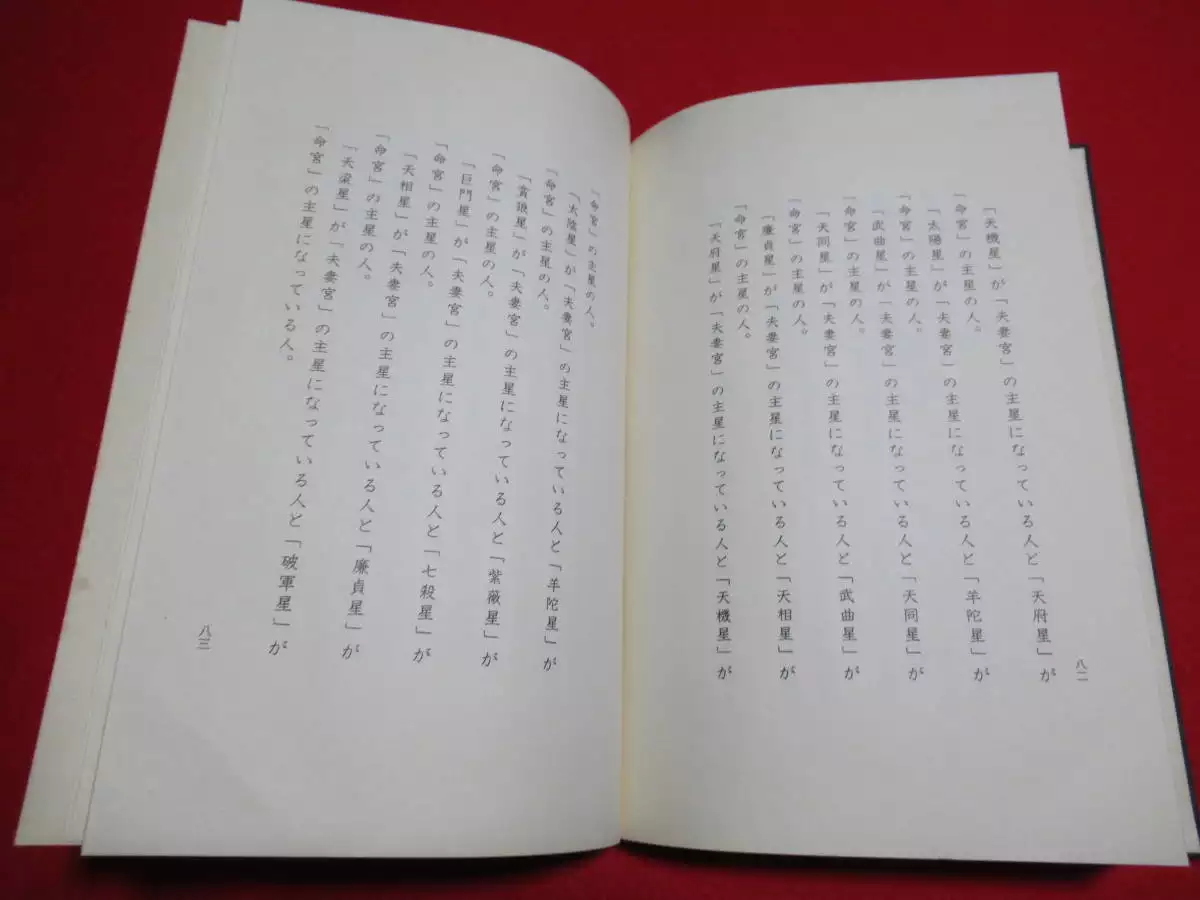 「天機星」が「夫妻宮」の主星になっている人と「天府星」が
「命宮」の主星の人。
「太陽星」が「夫妻宮」の主星になっている人と「羊陀星」が
「命宮」の主星の人。
「武曲星」が「夫妻宮」の主星になっている人と「天同星」が
「命宮」の主星の人。
「天同星」が「夫妻宮」の主星になっている人と「武曲星」が
「命宮」の主星の人。
「廉貞星」が「夫妻宮」の主星になっている人と「天相星」が
「命宮」の主星の人。
「天府星」が「夫妻宮」の主星になっている人と「天機星」が
八二
「命宮」の主星の人。
「太陰星」が「夫妻宮」の主星になっている人と「羊陀星」が
「命宮」の主星の人。
「貪狼星」が「夫妻宮」の主星になっている人と「紫薇星」が
「命宮」の主星の人。
「巨門星」が「夫妻宮」の主星になっている人と「七殺星」が
「命宮」の主星の人。
「天相星」が「夫妻宮」の主星になっている人と「廉貞星」が
「命宮」の主星の人。
「天梁星」が「夫妻宮」の主星になっている人と「破軍星」が
「命宮」の主星になっている人。
八三